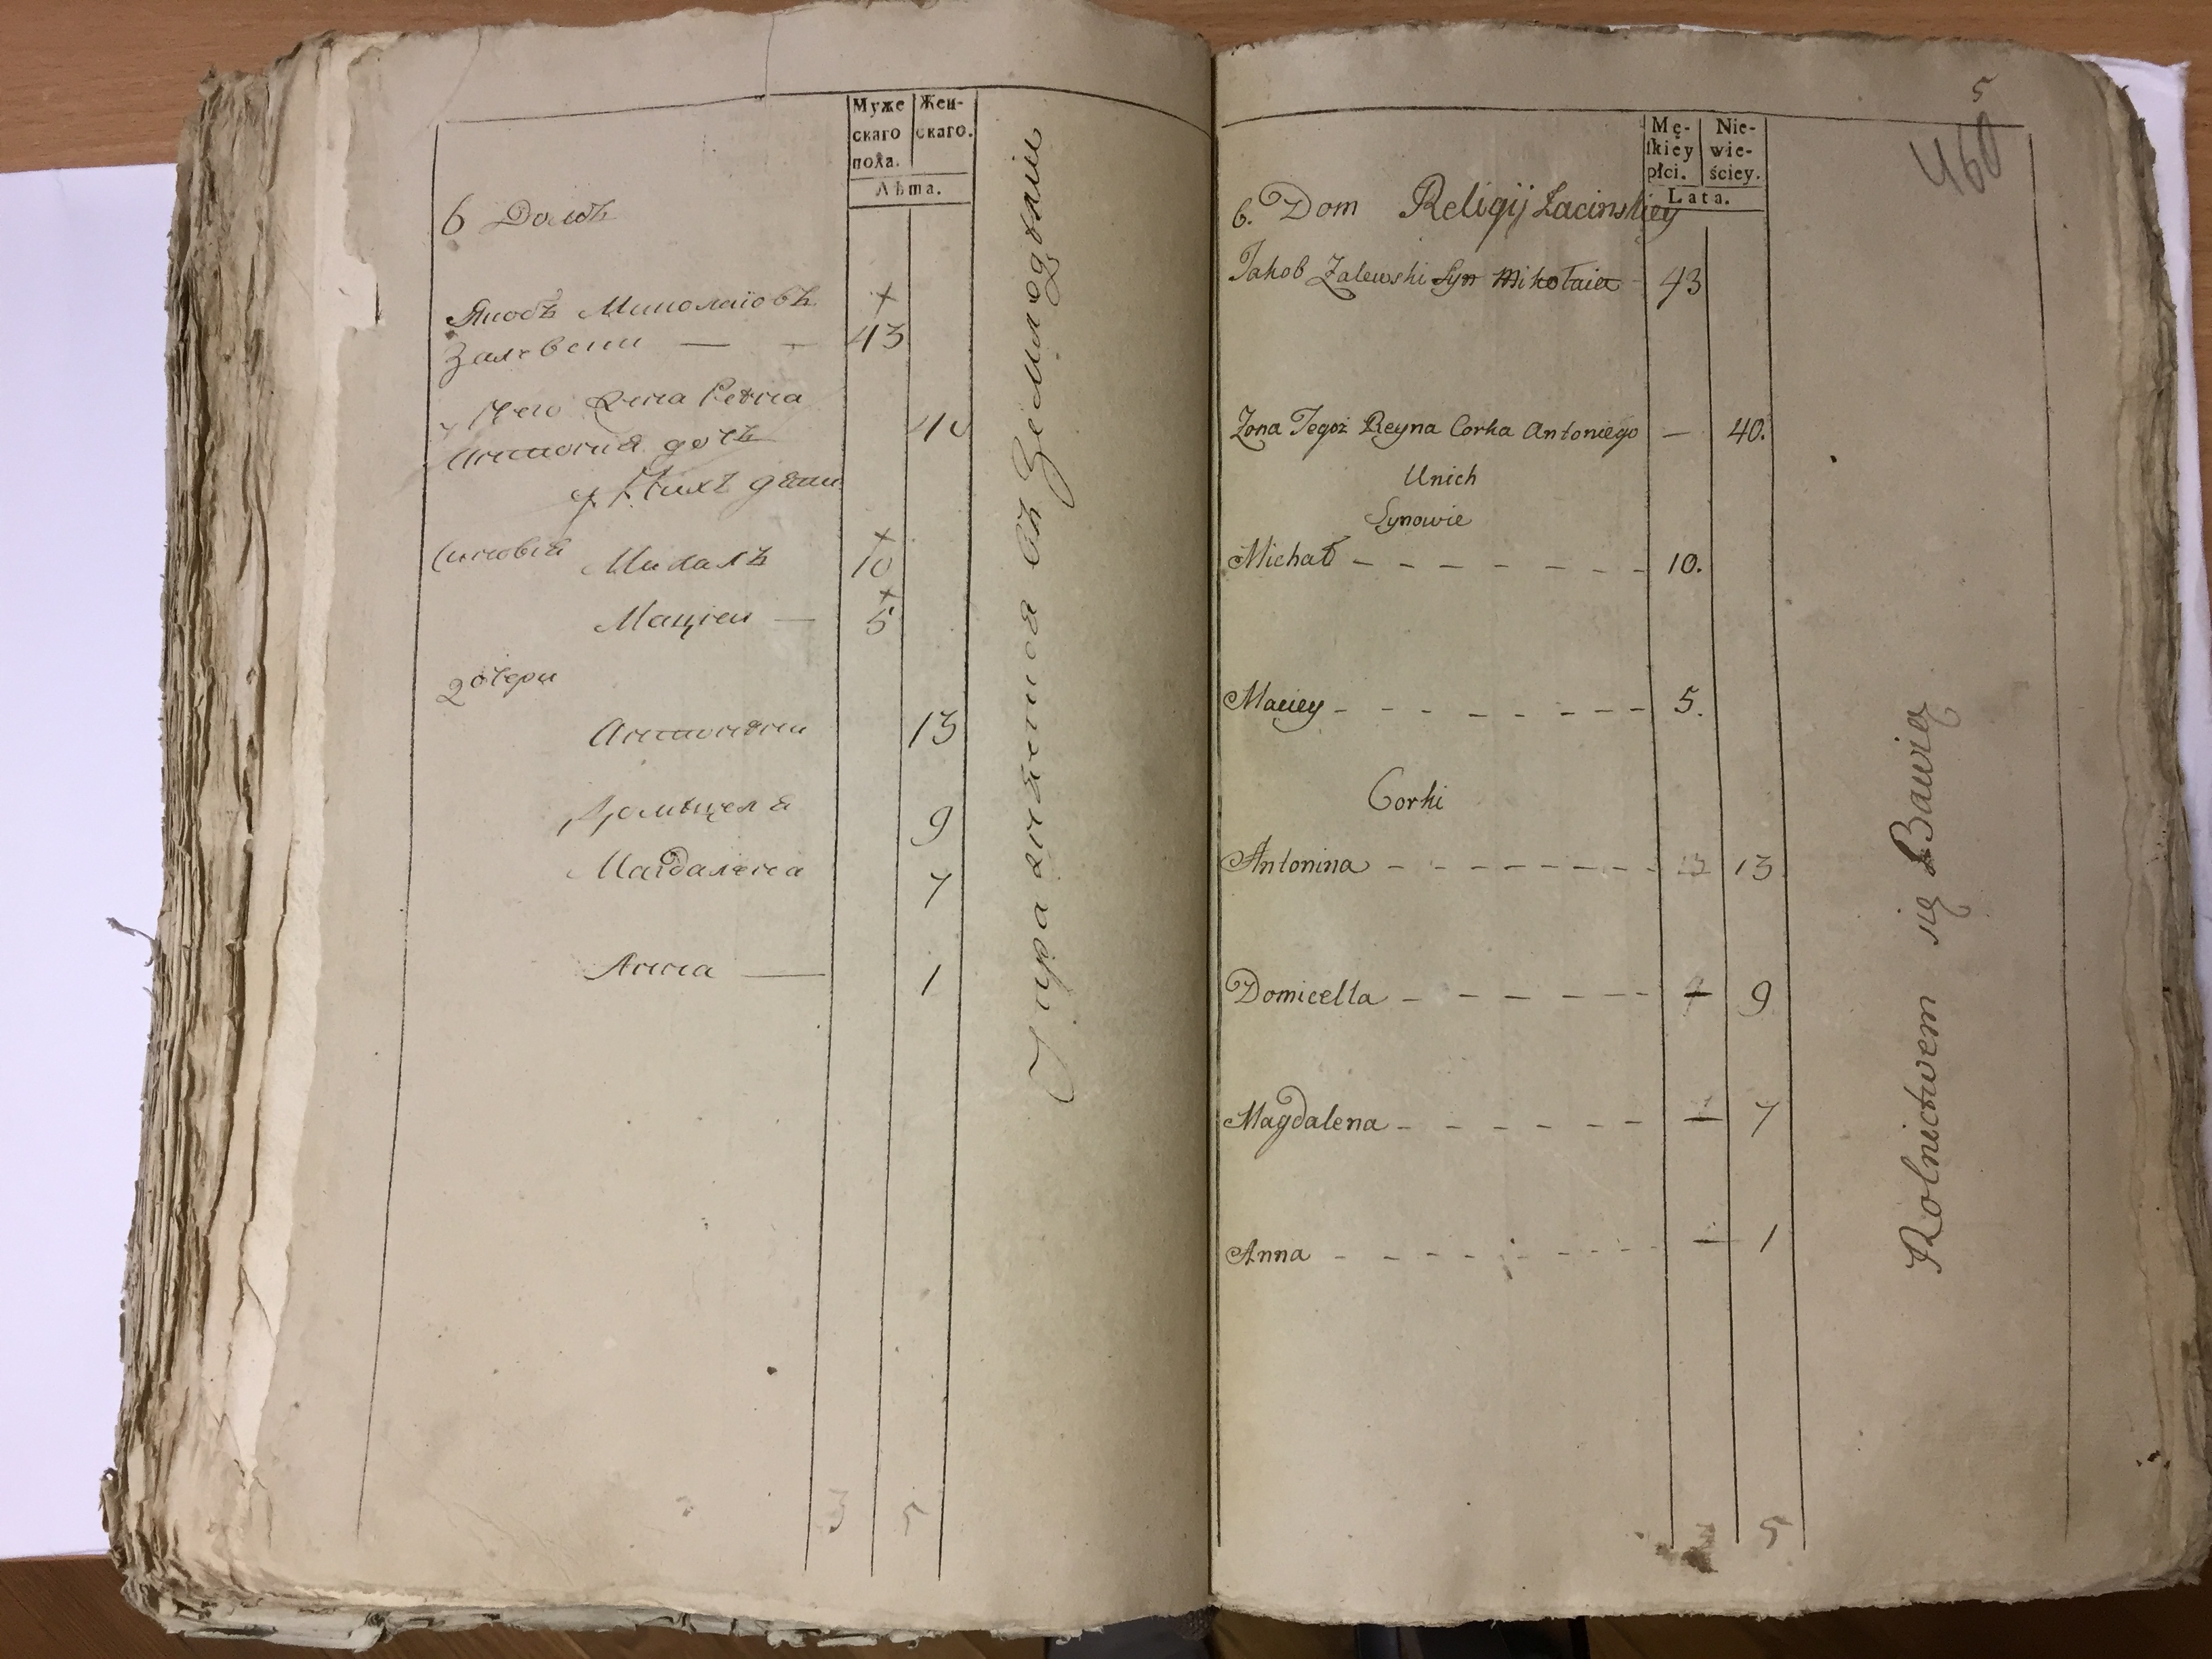 Муже
скаго
пола.
Жен-
скаго.
Лѣта.
6 Домъ
Якобъ Миколаiовъ
Залевски — — 43
У Него Жена Реина 40
Антонія дочь
У Нихъ дѣти
Синовія Михалъ 10
Мацiеи — 5
дочери
Антонина 13
Домицеля 9
Магдалена 7
Анна — 1
3 5
Упражняется въ Земледѣліи
5
460
Mę-
ſkiey
płci.
Nie-
wie-
ściey.
Lata.
6. Dom Religij Łacinskiey
Jakob Zalewski Syn Mikołaia - 43
Zona Tegoż Reyna Corka Antoniego — 40.
Unich
Synowie
Michał - - - - - - - 10.
Maciey - - - - - - - - 5.
Corki
Antonina - - - - - - - - 13
Domicella - - - - - - - 9
Magdalena - - - - - - 7
Anna - - - - - - - - - 1
5
Rolnictwem się Bawią